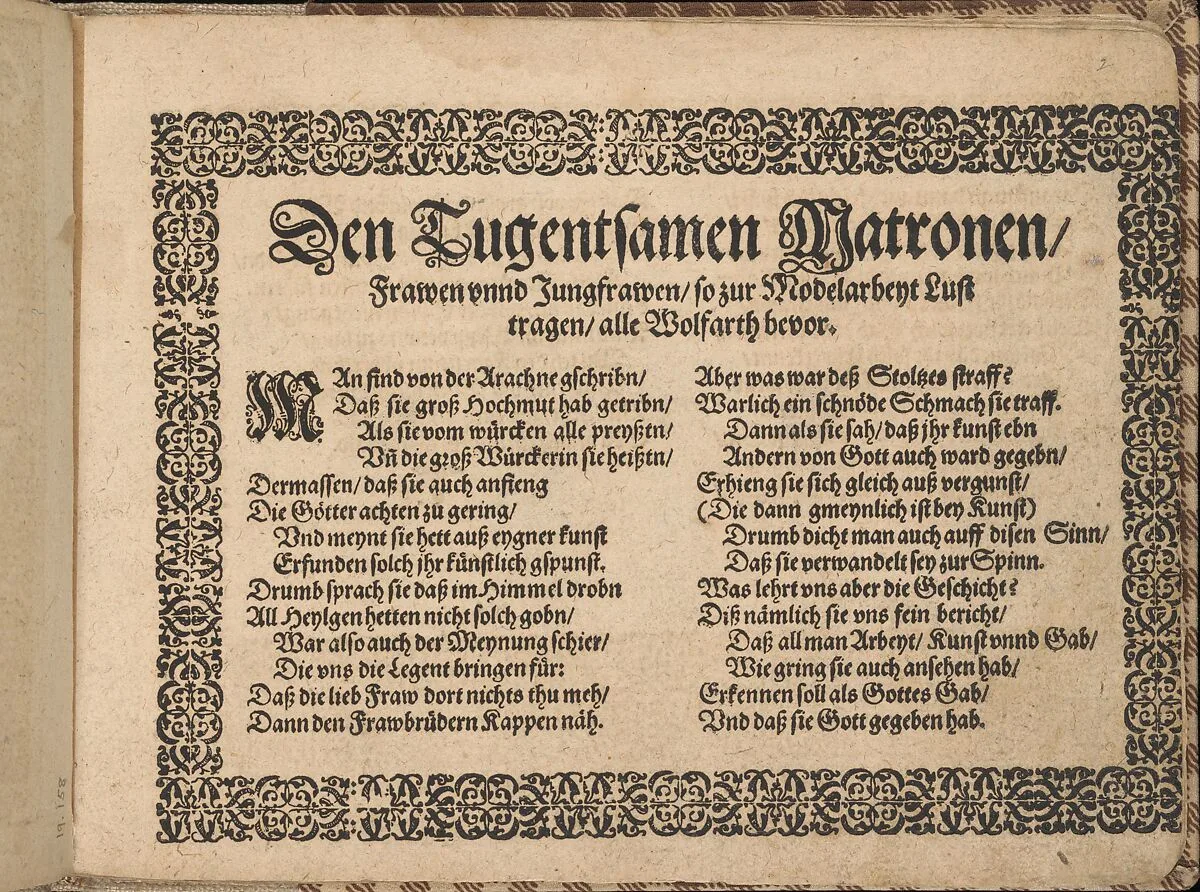 2
Den Tugentsamen Matronen/
Frawen vnnd Jungfrawen/ so zur Modelarbeyt Lust
tragen/ alle Wolfarth bevor.
MAn find von der Arachne gschribn/
Daß sie groß Hochmut hab getribn/
Als sie vom würcken alle preyßtn/
Vñ die groß Würckerin sie heißtn/
Dermassen/ daß sie auch anfieng
Die Götter achten zu gering/
Vnd meynt sie hett auß eygner kunst
Erfunden solch jhr künstlich gspunst.
Drumb sprach sie daß im Himmel drobn
All Heylgen hetten nicht solch gobn/
War also auch der Meynung schier/
Die vns die Legent bringen für:
Daß die lieb Fraw dort nichts thu meh/
Dann den Frawbrüdern Kappen näh.
Aber was war deß Stoltzes straff?
Warlich ein schnöde Schmach sie traff.
Dann als sie sah/ daß jhr kunst ebn
Andern von Gott auch ward gegebn/
Erhieng sie sich gleich auß vergunst/
(Die dann gmeynlich ist bey Kunst)
Drumb dicht man auch auff disen Sinn/
Daß sie verwandelt sey zur Spinn.
Was lehrt vns aber die Geschicht?
Diß nämlich sie vns fein bericht/
Daß all man Arbeyt/ Kunst vnnd Gab/
Wie gring sie auch ansehen hab/
Erkennen soll als Gottes Gab/
Vnd daß sie Gott gegeben hab.